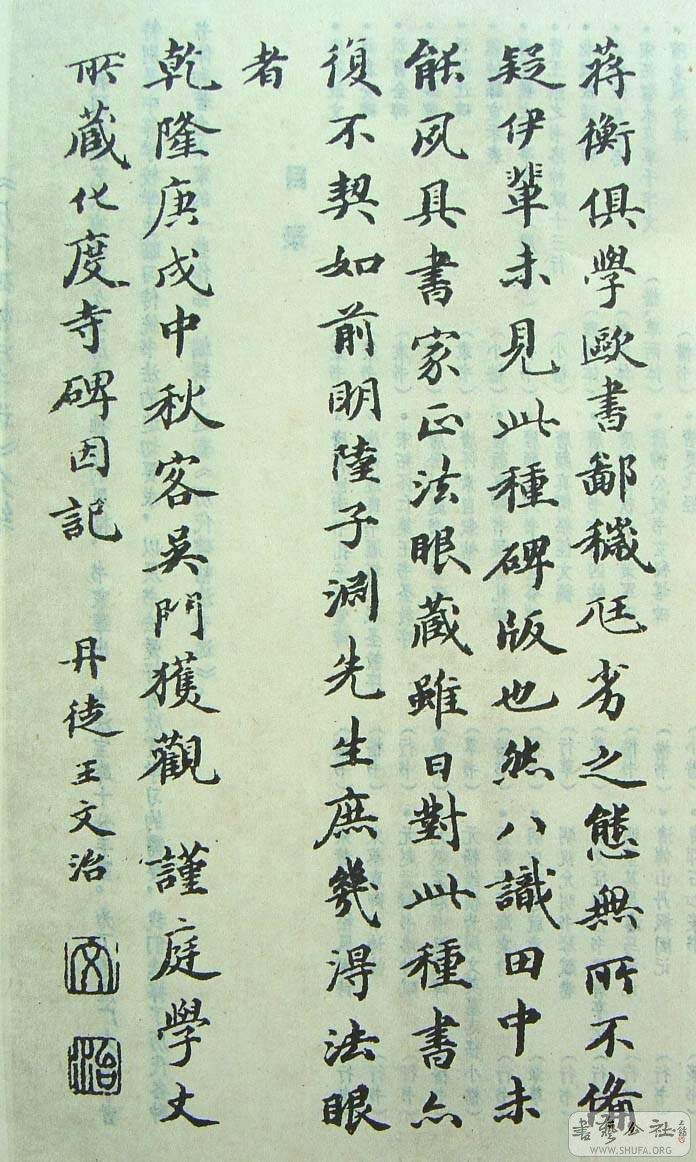 蔣衡俱學歐書鄙穢尫劣之態無所不備
疑伊輩未見此種碑版也然八識田中未
能夙具書家正法眼藏雖日對此種書亦
復不契如前明陸子淵先生庶幾得法眼
者
乾隆庚戌中秋客吳門獲觀 謹庭學丈
所藏化度寺碑因記 丹徒王文治
文
治
書藝公社
WWW.SHUFA.ORG